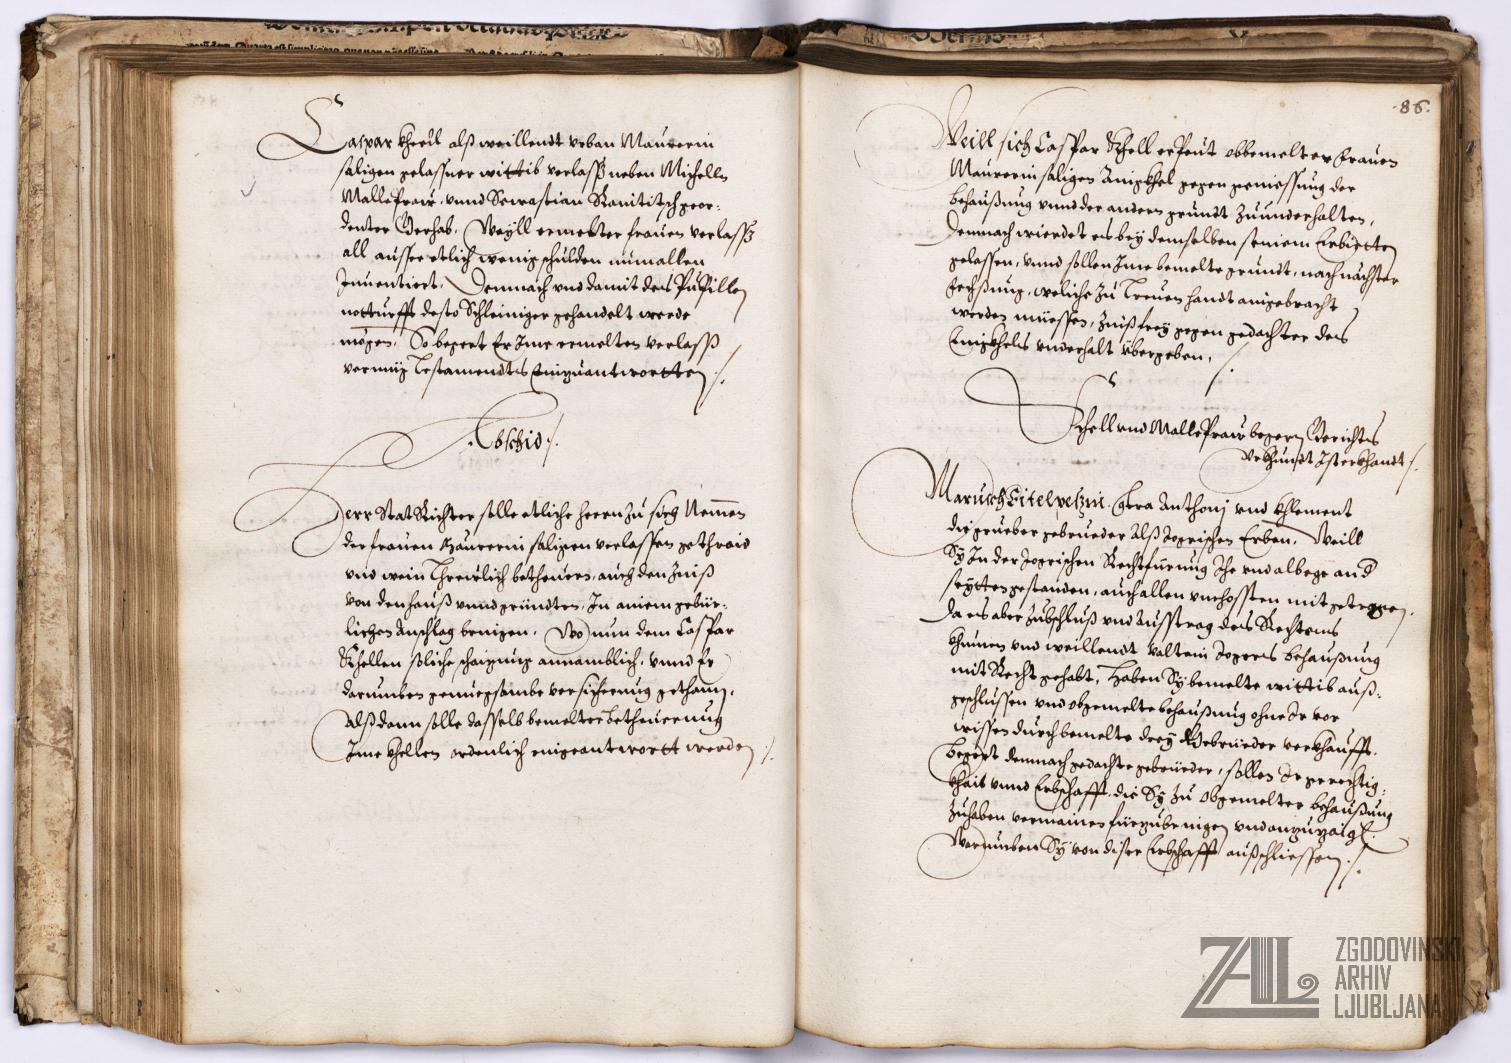 Caspar Khell alß weillendt Vrban Maurerin
säligen gelassner wittib verlass neben Michelln
Malleprair vnnd Sewastian Ranititsch geor-
denter Gerhab. Weyll ermelter frauen verlass
all ausser etlich wenig schulden nunmallen
Inuentiert, Demnach vnd damit des Pupillen
notturfft desto Schleiniger gehandelt werde
mögen. So begert Er Ime ermelten verlass
vermüg Testamendts Einzuantwortten
Abschid
Herr Stat Richter solle etliche herrn zu sich Nemen
der frauen Maurerin säligen verlassen gethraid
vnd wein Threulich betheuern, auch den Zinß
von den hauß vnnd gründten, In ainem gebür-
lichen Anschlag bringen. Wo nun dem Caspar
Khellen solliche schatzung annamblich, vnnd Er
darumben genuegsambe versicherung gethan,
Alßdann solle dasselb bemelter Betheuerung
Ime Khellen ordenlich eingeantwortt werden
86.
Weill sich Caspar Khell erpeut obbemelter frauen
Maurerin säligen Enigkhel gegen geniessung der
behaußung vnnd der andern gründt zuunderhalten,
Demnach wierdet es bey demselben seinem Erbietten
gelassen, vnnd sollen Ime bemelte gründt, nach nächster
fexßung, weliche zu Treuen handt angebracht
werden müessen, Zinßfrey gegen gedachter des
Enigkhels vnderhalt übergeben.
Khell vnd Malleprair begern Gerichts
vrkhundt Ist erkhandt
Marusch Eitelpeßin Anthonj vnd Khlement
die grueber gebrueder Alß Jogrischen Erben. Weill
Sy In der Jogrischen Rechtfürung Ihe vnd albeg and
seytten gestanden, auch allen vnchossten mit getragen,
Da es aber zu bschluß vnd Ausstrag des Rechtens
khumen vnd weillendt valtein Jogers behaußung
mit Recht gehabt, Haben Sy bemelte wittib auß-
geschlussen vnd obgemelte behaußung ohne Ir vor
wissen durch bemelte drey Gebrüeder verkhaufft.
Begert demnach gedachte gebrüeder, sollen Ir gerechtig-
khait vnnd Erbschafft, die Sy zu obgemelter behaußung
zuhaben vermainen fürzubringen vnd anzuzaigen.
Warumben Sy von diser Erbschafft außschliessen.
ZAL
ZGODOVINSKI
ARHIV
LJUBLJANA